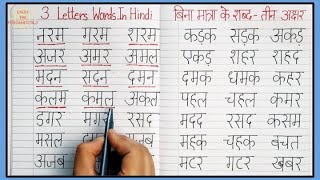 3 Letters Words In Hindi
नरम गरम शरम
अजर अमर अमल
मदन सदन दमन
कलम कमल अकल
डगर मगर रसद
मसल
अजब
बिना मात्रा के शब्द - तीन अक्षर
कड़क सड़क अकड़
एकड़ शहर शहद
दमक धमक कहर
पहल चहल कमर
मदद रसद कसम
महक चहक बचत
मटर गटर खबर